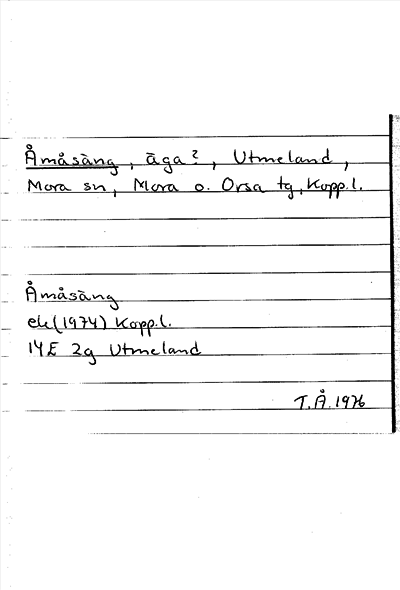 Åmåsäng, äga?, Utmeland,
Mora sn, Mora o. Orsa tg, Kopp.l.
Åmåsäng
ek (1974) Kopp.l.
14E 2g Utmeland
T.Å. 1976